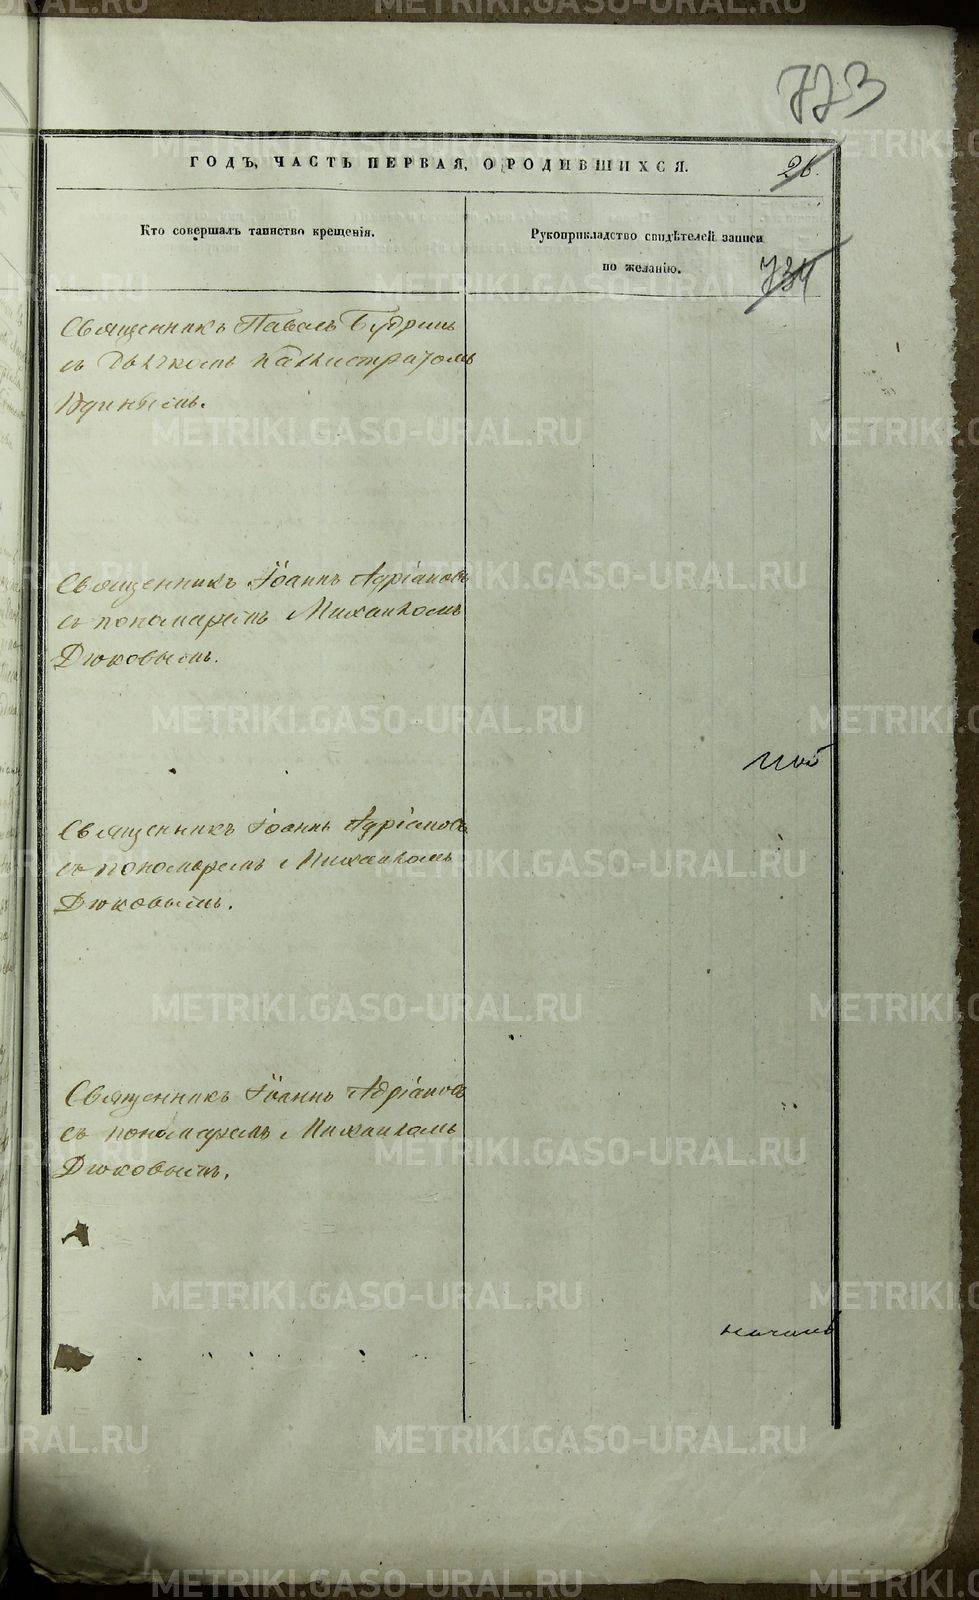 773
ГОДЪ, ЧАСТЬ ПЕРВАЯ, О РОДИВШИХСЯ.
26.
Кто совершалъ таинство крещенія.
Рукоприкладство свидѣтелей записи
по желанію.
734
Священникъ Павелъ Будринъ
съ Дьячкомъ Каллистратомъ
Священникъ Іоаннъ Адріановъ
съ пономаремъ Михаиломъ
Дюковымъ.
Священникъ Іоаннъ Адріановъ
съ пономаремъ Михаиломъ
Дюковымъ.
Священникъ Іоаннъ Адріановъ
съ пономаремъ Михаиломъ
Дюковымъ.
METRIKI.GASO-URAL.RU